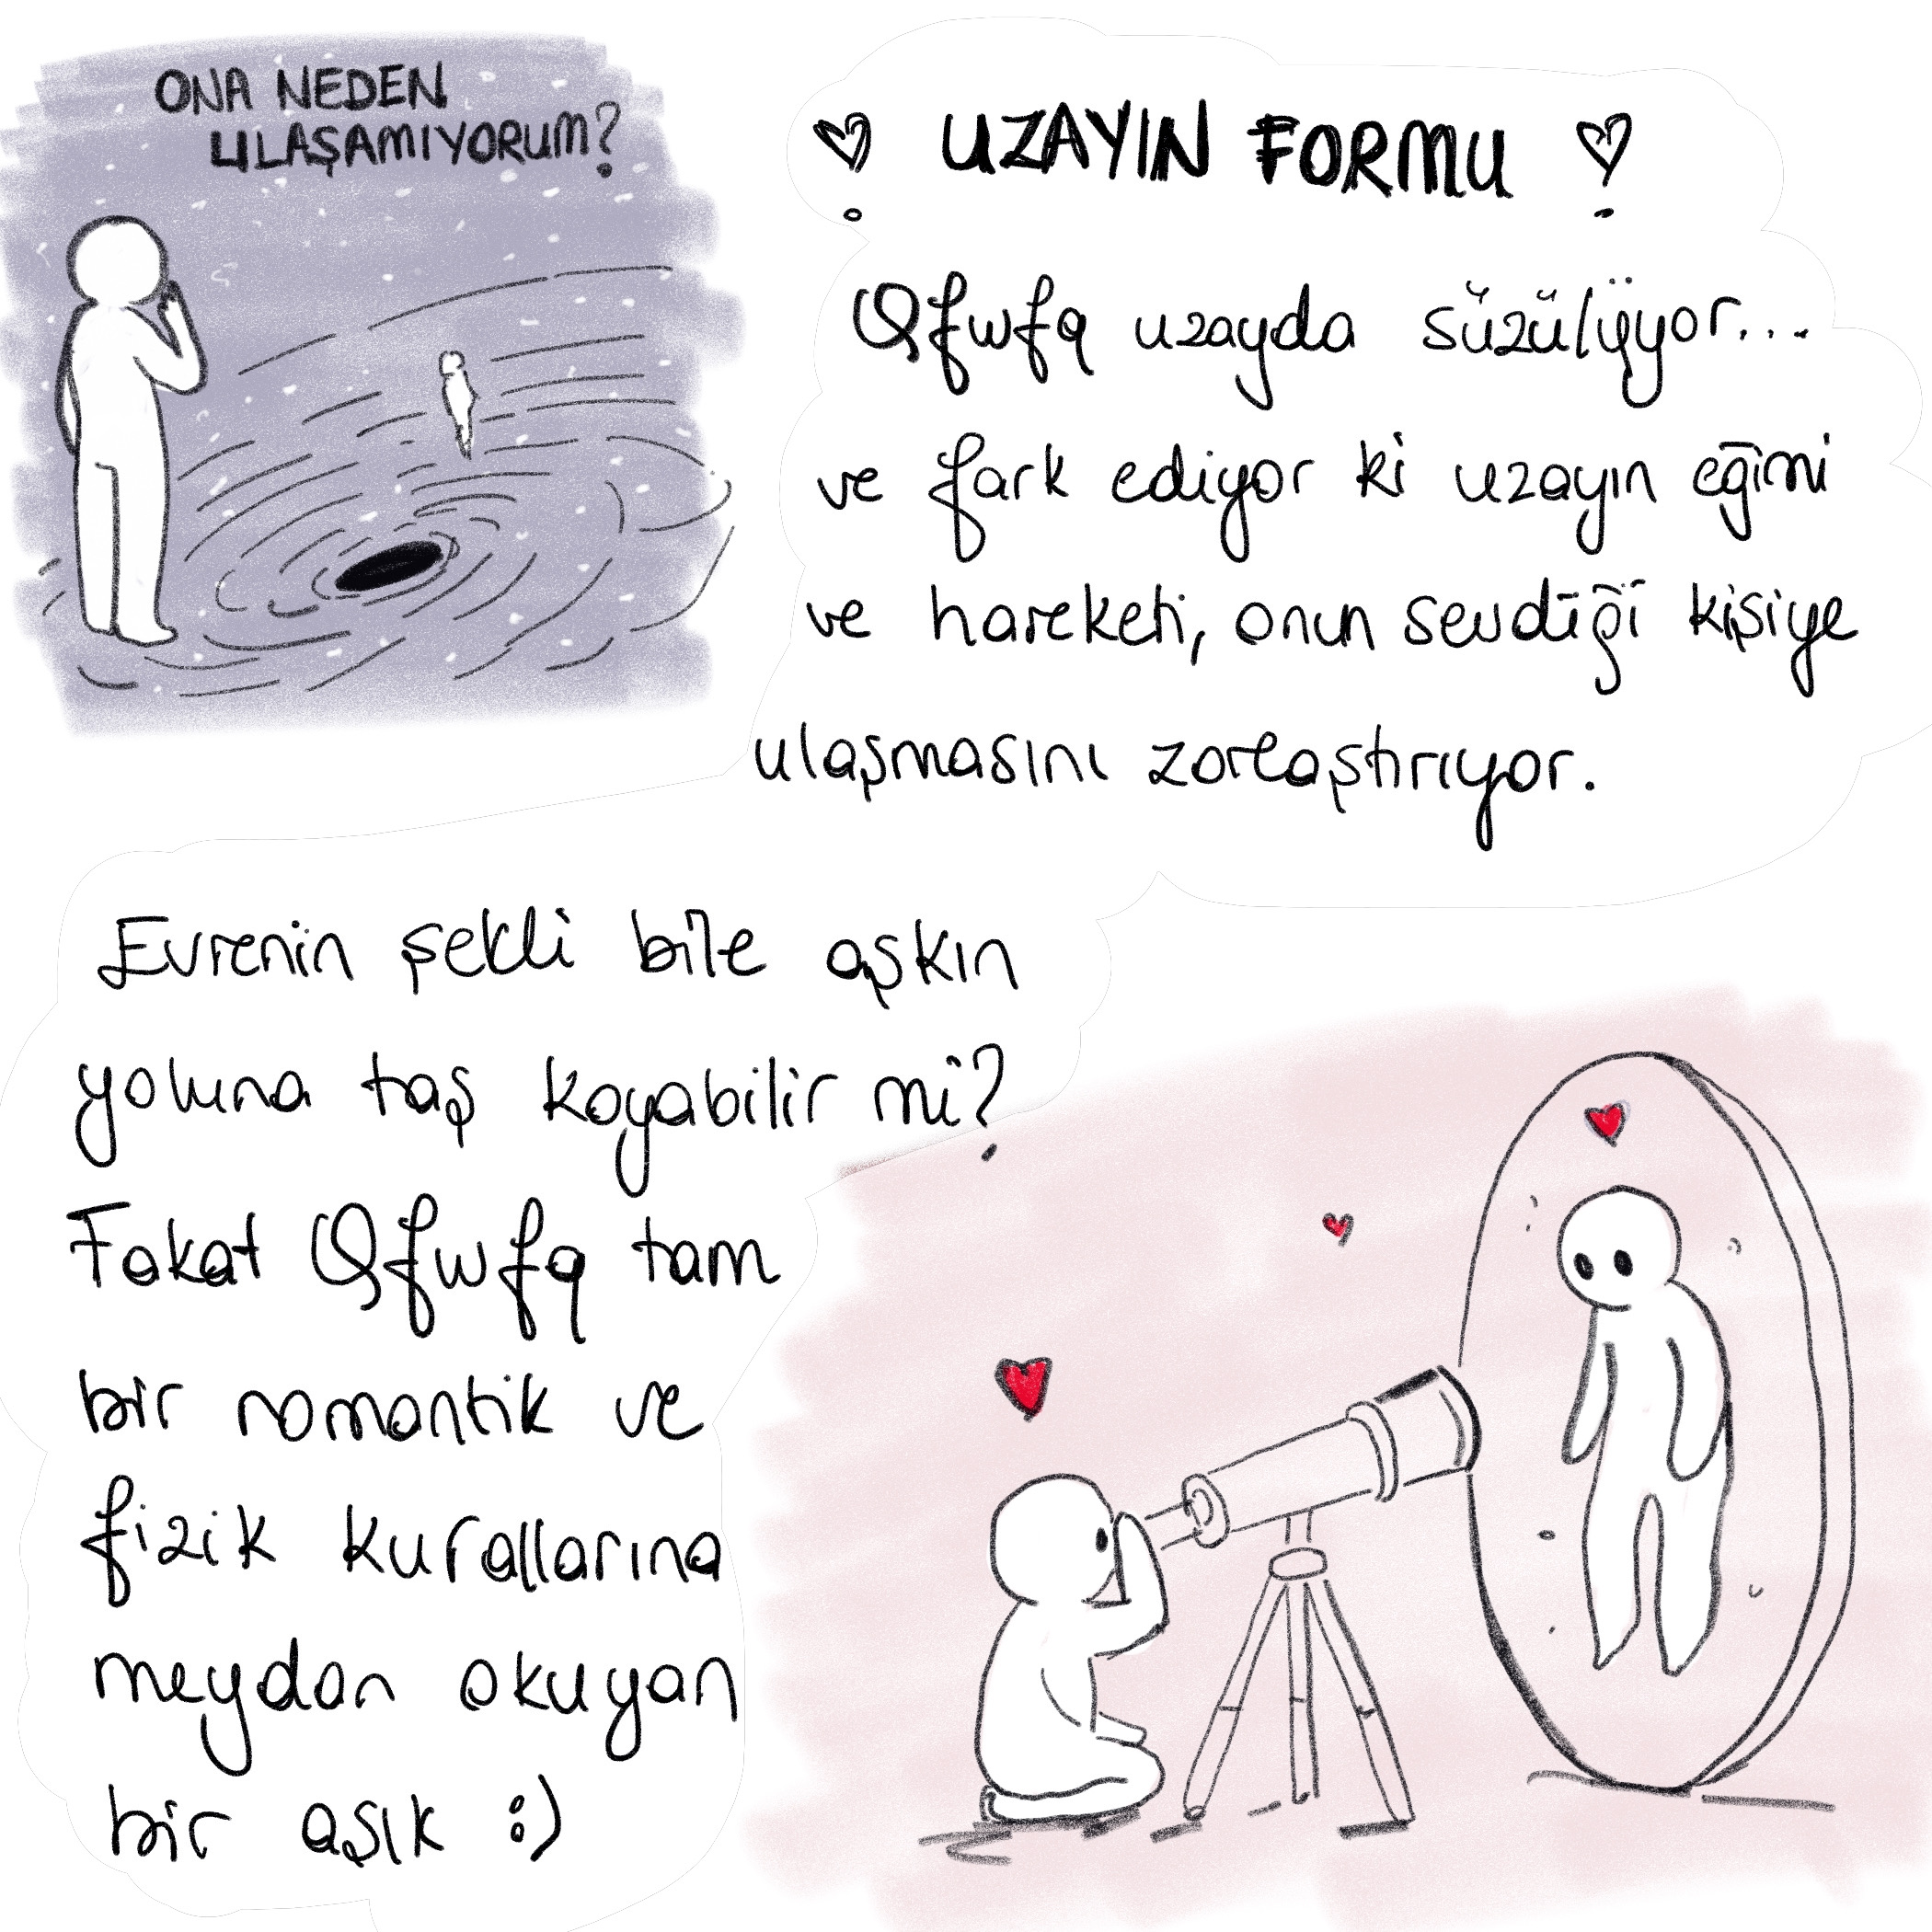 ONA NEDEN
ULAŞAMIYORUM?
UZAYIN FORMU
Qfwfq uzayda süzülüyor...
ve fark ediyor ki uzayın eğimi
ve hareketi, onun sevdiği kişiye
ulaşmasını zorlaştırıyor.
Evrenin şekli bile aşkın
yoluna taş koyabilir mi?
Fakat Qfwfq tam
bir romantik ve
fizik kurallarına
meydan okuyan
bir aşık :)